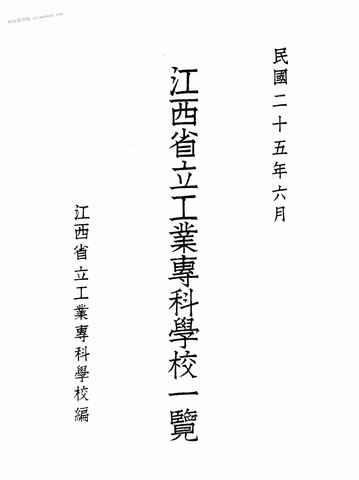 民國二十五年六月
江西省立工業專科學校一覽
江西省立工業專科學校編